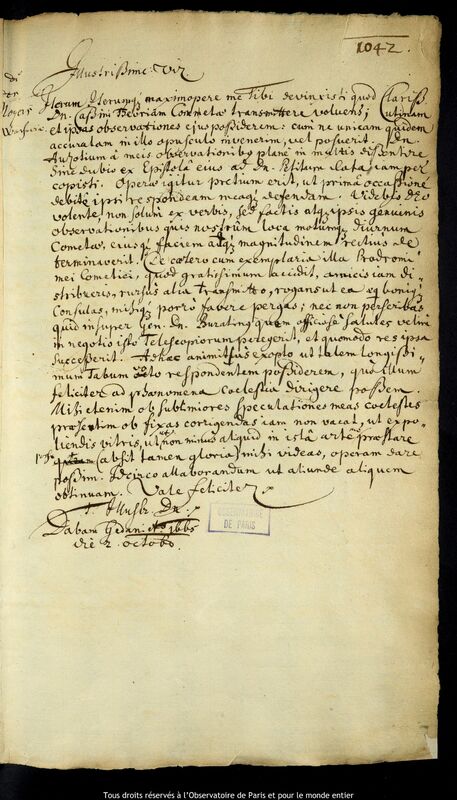 1042.
Illustrissime Vir
Iterum Iterumq; maximopere me Tibi devinxisti quod Clariss.
Dn. Cassini Theoriam Cometæ transmittere volueris; utinam
et ipsas observationes ejus possiderem: cum ne unicam quidem
accuratam in illo opusculo invenerim, vel posuerit. Dn.
Auzotium à meis observationibus plane in multis dissentire
sine dubio ex Epistola ejus ad Dn. Petitum data jam per
cepisti. Operæ igitur pretium erit, ut prima occasione
debitè ipsi respondeam meaq; defendam. Videbis DEO
volente, non solum ex verbis, sed factis atq; ipsis genuinis
observationibus quis nostrum loca motumq; diurnum
Cometæ, ejusq; faciem atq; magnitudinem rectius de
terminaverit. De cætero cum exemplaria illa Prodromi
mei Cometici, quod gratissimum accidit, amicis jam di-
stribueris, rursus alia transmitto, rogans ut ea æqui boniq;
Consulas, mihiq; porro favere pergas; nec non perscribas
quid insuper Gen. Dn. Buratinq; quem officiose salutes velim
in negotio isto Telescopiorum peregerit, et quomodo res ipsa
successerit. Adhæc animitus exopto ut talem longissi-
mum Tubum octo respondentem possiderem, quo illum
feliciter ad phænomena Coelestia dirigere possem.
Mihi etenim ob sublimiores speculationes meas coelestes
præsertim ob fixas corrigendas jam non vacat, ut expo-
liendis vitris, ubi non minus aliquid in istâ arte præstare
possim (absit tamen gloria) mihi videar, operam dare
possim. Idcirco allaborandum ut aliunde aliquem
obtineam. Vale feliciter
T. Illustr. Dn.
Dabam Gedani Aō 1665
die 2. octobr.
OBSERVATOIRE
DE PARIS
Tous droits réservés à l'Observatoire de Paris et pour le monde entier